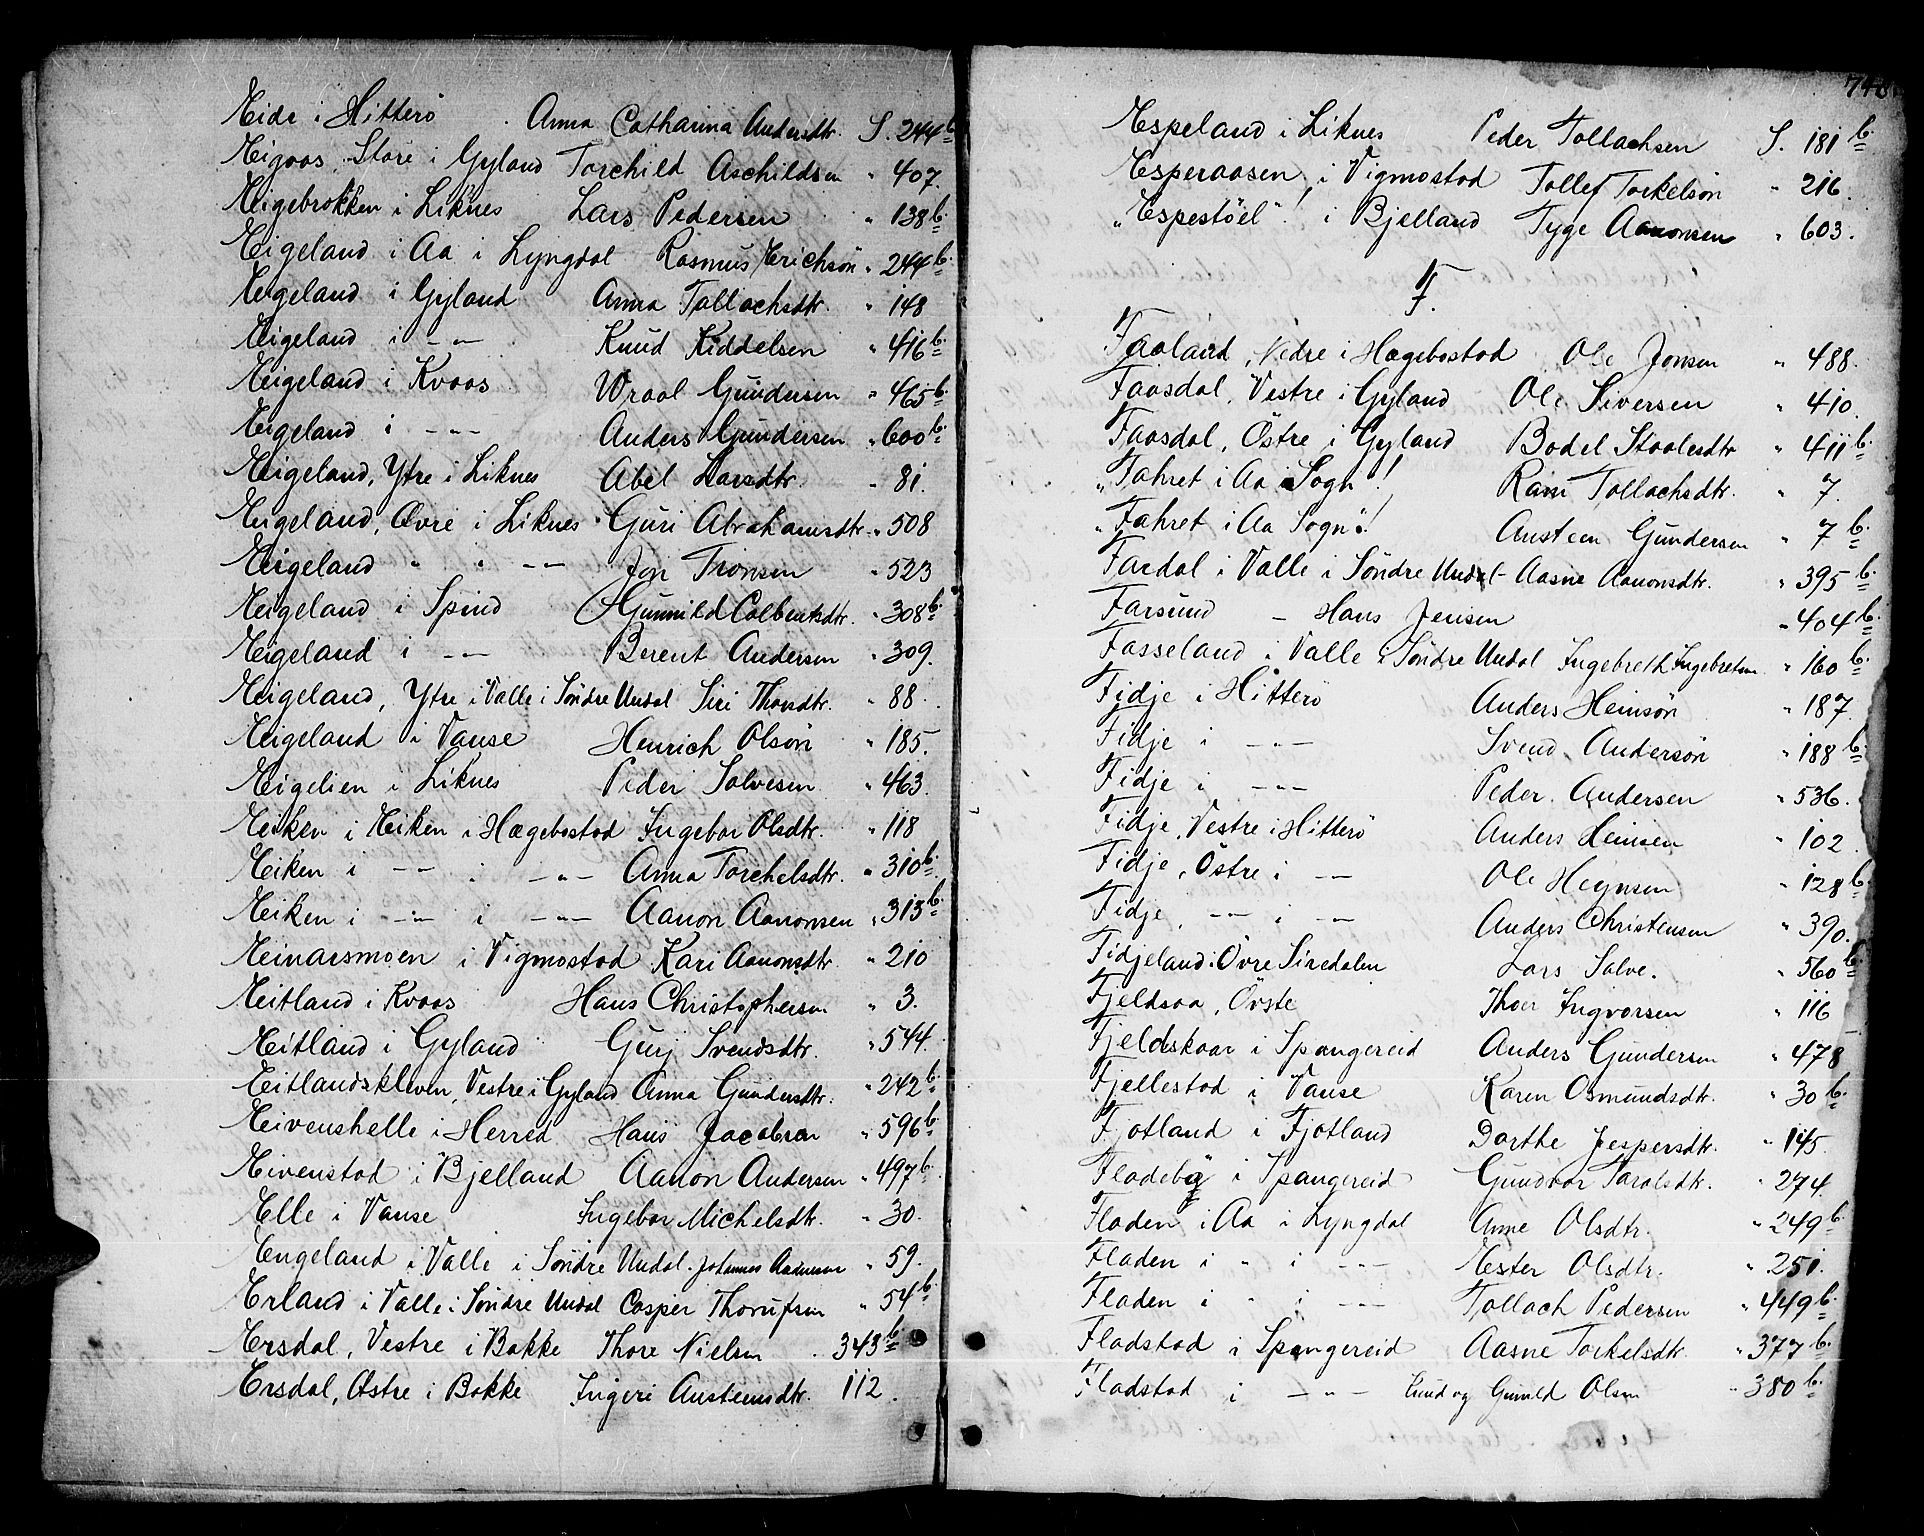 Eide i Hitterö Anna Catharina Andersdtr. S. 244 b.
Eigaas, Store i Gyland Torchild Aschildsen " 407.
Eigebrokken i Liknes Lars Pedersen " 138 b.
Eigeland i Aa i Lyngdal Rasmus Erichsön " 244 b.
Eigeland i Gyland Anna Tollachsdtr. " 148
Eigeland i -"- Knud Kiddelsen " 416 b.
Eigeland i Kvaas Wraal Gundersen " 465 b.
Eigeland i -"- Anders Gundersen " 600 b.
Eigeland, Ytre i Liknes Abel Larsdtr. " 81.
Eigeland, Øvre i Liknes Guri Abrahamsdtr. " 508
Eigeland " i -"- Jon Tronsen " 523
Eigeland i Spind Gunnild Colbentsdtr. " 308 b.
Eigeland i -"- Berent Andersen " 309.
Eigeland, Ytre i Valle i Söndre Undal Siri Thorsdtr. " 88.
Eigeland i Vanse Henrich Olsön " 185.
Eigelien i Liknes Peder Salvesen " 463.
Eiken i Eiken i Hægebostad Ingebor Olsdtr. " 118
Eiken i -"- i -"- Anna Torchelsdtr. " 310 b.
Eiken i -"- i -"- Aanon Aanonsen " 313 b.
Einarsmoen i Vigmostad Kari Aanonsdtr. " 210
Eitland i Kvaas Hans Christophersen " 3.
Eitland i Gyland Gurj Svendsdtr. " 544.
Eitlandskleven, Vestre i Gyland Anna Gundersdtr. " 242 b.
Eivenshelle i Herred Hans Jacobsen " 596 b.
Eivenstad i Bjelland Aanon Andersen " 497 b.
Elle i Vanse Ingebor Michelsdtr. " 30.
Engeland i Valle i Söndre Undal. Johannes Aanensen " 59.
Erland i Valle i Söndre Undal Casper " 54 b.
Ersdal, Vestre i Bakke Thore Nielsen . 343 b.
Ersdal, Østre i Bakke Ingeri Austensdtr. 112.
740
Espeland i Liknes Peder Tollachsen S. 181 b.
Esperaasen i Vigmostad Tollef Torkelsön " 216.
"Espestöel"! i Bjelland Tyge Aanonsen " 603.
F.
Faaland, Nedre i Hægebostad Ole Jonsen " 488.
Faasdal, Vestre i Gyland Ole Siversen " 410.
Faasdal, Östre i Gyland Bodel Staalesdtr " 411 b.
"Fahret i Aa Sogn"! Rani Tollachsdtr. " 7.
"Fahret i Aa Sogn"! Austeen Gundersen " 7 b.
Fardal i Valle i Söndre Undal - Aasne Aanonsdtr. " 395 b.
Farsund - Hans Jensen " 404 b.
Fasseland i Valle i Söndre Undal Ingebreth Ingebretsen " 160 b.
Fidje i Hitterö Anders Heinsön " 187.
Fidje i -"- Svend Andersön " 188 b.
Fidje i -"- Peder Andersen " 536.
Fidje, Vestre i Hitterö Anders Heinsen " 102
Fidje, Östre i -"- Ole Heynsen " 128 b.
Fidje, -"- i -"- Anders Christensen " 390.
Fidjeland i Övre Siredalen Lars Salve. " 560 b.
Fjeldsaa, Övste Thor Ingvorsen " 116
Fjeldskaar i Spangereid Anders Gundersen " 478
Fjellestad i Vanse Karen Osmundsdtr. " 30 b.
Fjotland i Fjotland Dorthe Jespersdtr. " 145.
Fladebö i Spangereid Gundvor Taralsdtr. " 274.
Fladen i Aa i Lyngdal Anne Olsdtr. " 249 b.
Fladen i " i -"- Ester Olsdtr. " 251.
Fladen i " i -"- Tollach Pedersen " 449 b.
Fladstad i Spangereid Aasne Torkelsdtr. " 377 b.
Fladstad i -"- Lund og Gunild Olsen " 380 b.